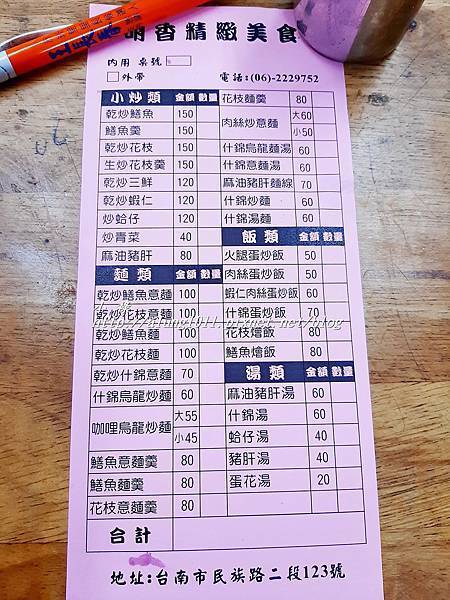 香精緻美食
內用 桌號
外帶 電話:(06)-2229752
小炒類 金額 數量
乾炒鱔魚 150
鱔魚羹 150
乾炒花枝 150
生炒花枝羹 150
乾炒三鮮 120
乾炒蝦仁 120
炒蛤仔 120
炒青菜 40
麻油豬肝 80
麵類 金額 數量
乾炒鱔魚意麵 100
乾炒花枝意麵 100
乾炒鱔魚麵 100
乾炒花枝麵 100
乾炒什錦意麵 70
什錦烏龍炒麵 60
咖哩烏龍炒麵 大55 小45
鱔魚意麵羹 80
鱔魚麵羹 80
花枝意麵羹 80
合計
花枝麵羹 80
肉絲炒意麵 大60 小50
什錦烏龍麵湯 60
什錦意麵湯 60
麻油豬肝麵線 70
什錦炒麵 60
什錦湯麵 60
飯類 金額 數量
火腿蛋炒飯 50
肉絲蛋炒飯 50
蝦仁肉絲蛋炒飯 60
什錦蛋炒飯 70
花枝燴飯 80
鱔魚燴飯 80
湯類 金額 數量
麻油豬肝湯 60
什錦湯 60
蛤仔湯 40
豬肝湯 40
蛋花湯 20
地址:台南市民族路二段123號